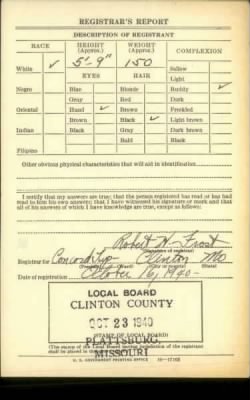 REGISTRAR'S REPORT
DESCRIPTION OF REGISTRANT
RACE HEIGHT (Approx.) WEIGHT (Approx.) COMPLEXION
White ✓ 5'-9" 150 Sallow
EYES HAIR Light
Negro Blue Blonde Ruddy ✓
Gray Red Dark
Oriental Hazel ✓ Brown Freckled
Brown Black ✓ Light brown
Indian Black Gray Dark brown
Bald Black
Filipino
Other obvious physical characteristics that will aid in identification
I certify that my answers are true; that the person registered has read or has had
read to him his own answers; that I have witnessed his signature or mark and that
all of his answers of which I have knowledge are true, except as follows:
Robert H. Frost
Registrar for Concord Twp Clinton Mo
(City or county) (State)
Date of registration October 16, 1940
LOCAL BOARD
CLINTON COUNTY
OCT 23 1940
(STAMP OF LOCAL BOARD)
PLATTSBURG,
MISSOURI
(The stamp of the Local Board having jurisdiction of the registrant
shall be placed in the above space.)
U. S. GOVERNMENT PRINTING OFFICE 16—17105